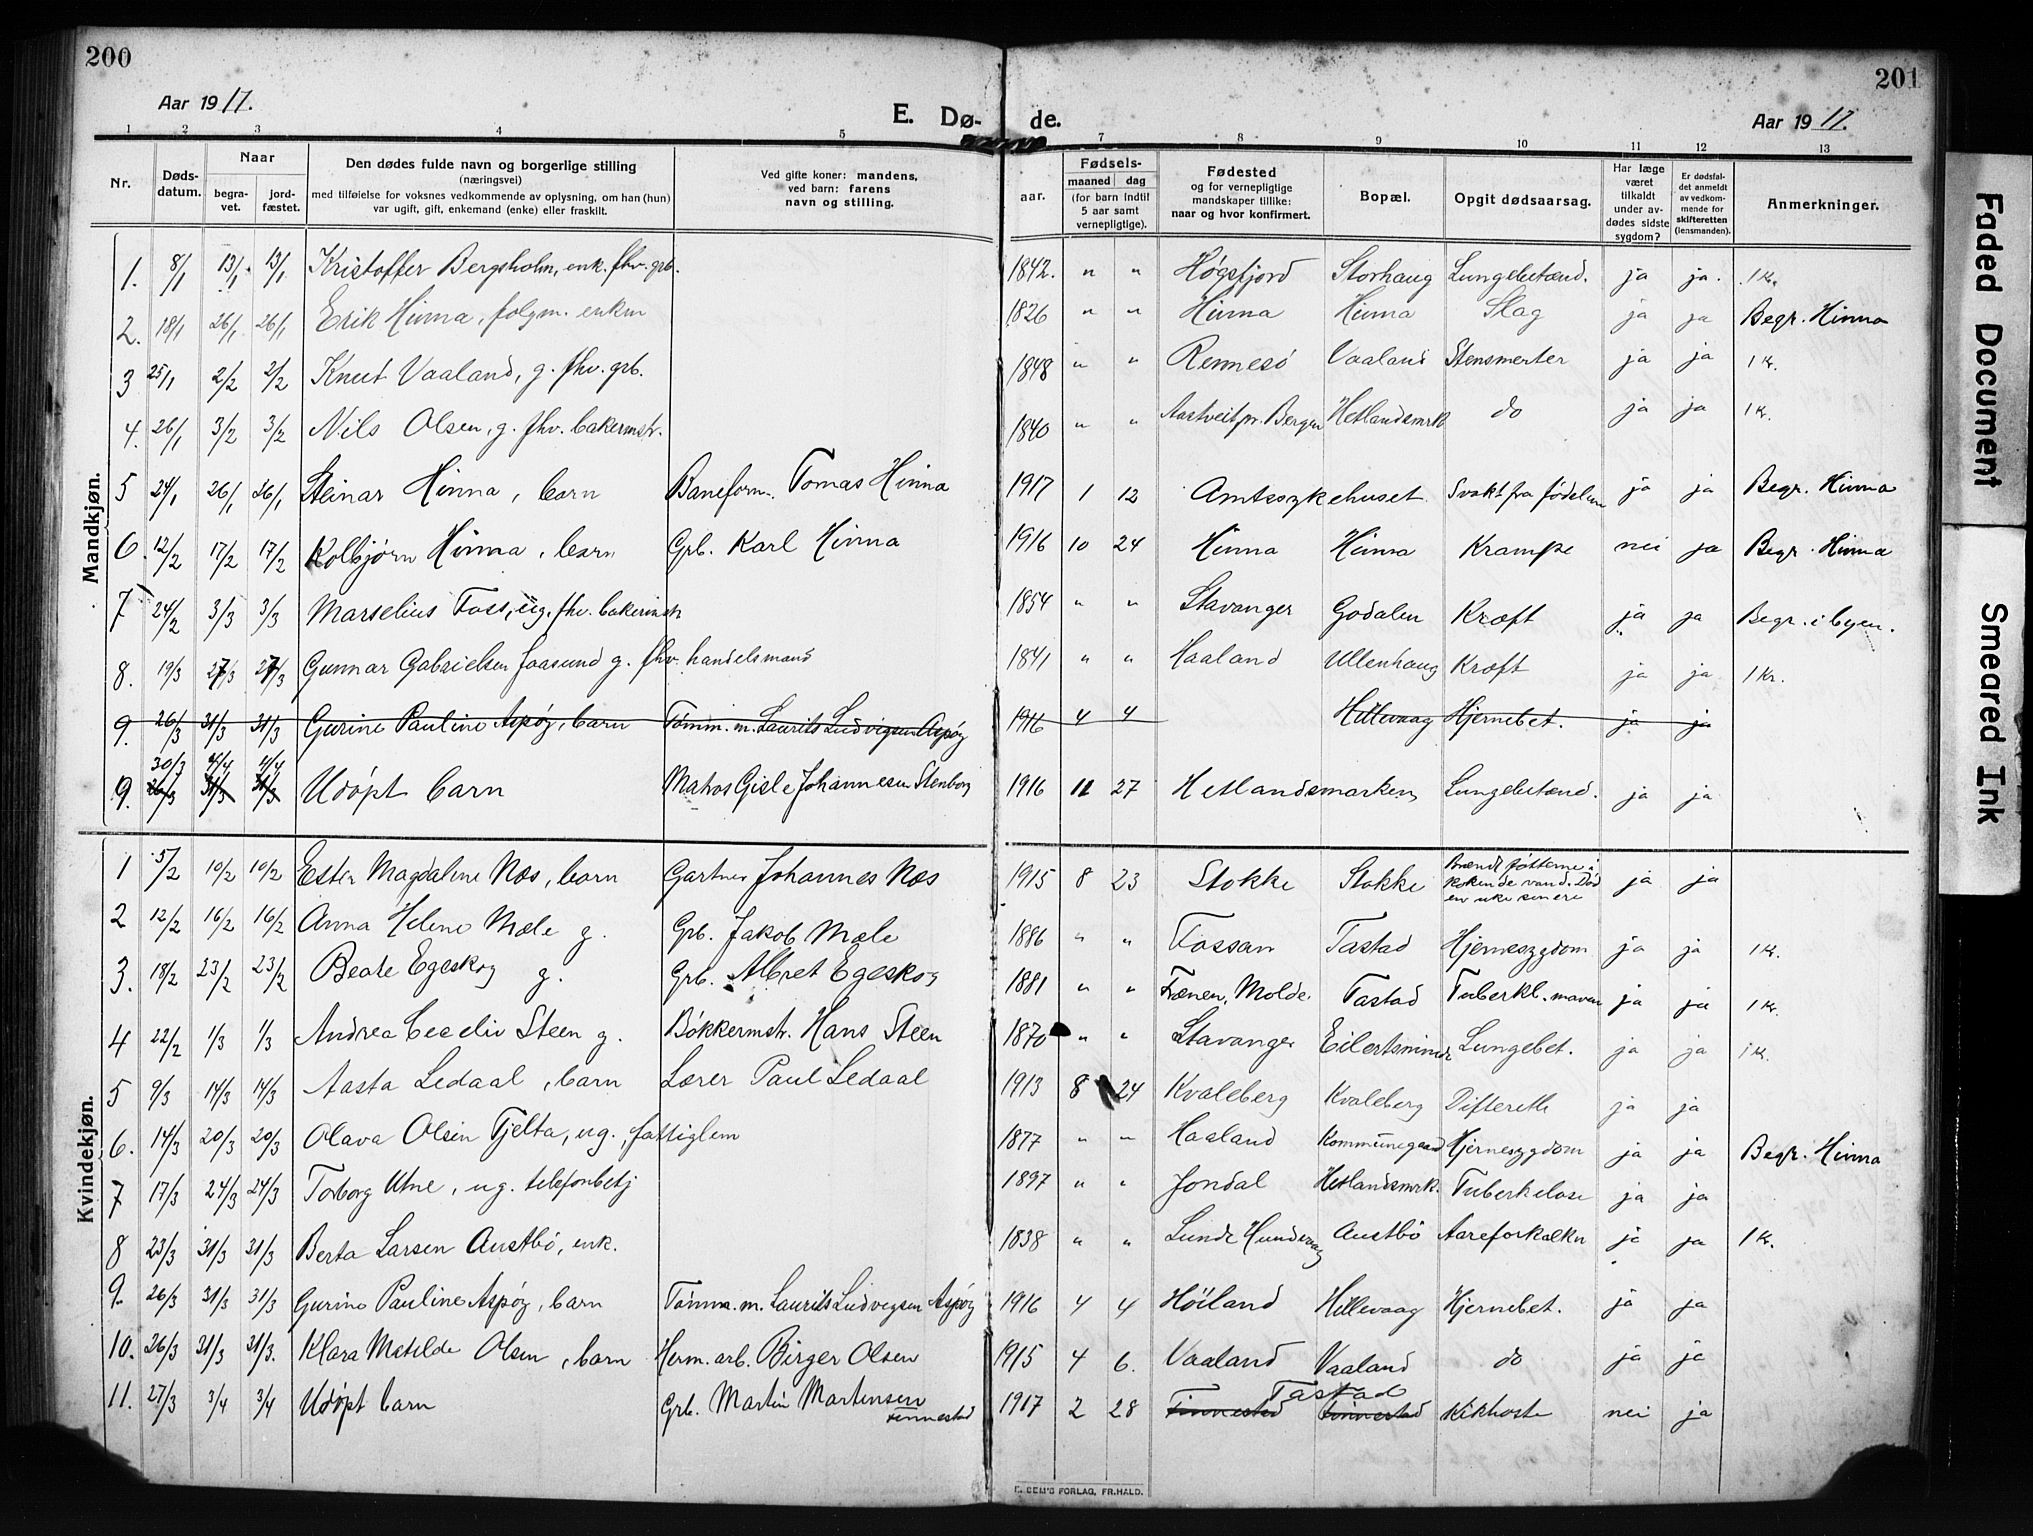 200
201
Aar 1917.
E. Dø-
de.
Aar 1917.
1 2 3 4 5 7 8 9 10 11 12 13
Nr.
Døds-
datum.
Naar
begra-
vet.
jord-
fæstet.
Den dødes fulde navn og borgerlige stilling
(næringsvei)
med tilføielse for voksnes vedkommende av oplysning, om han (hun)
var ugift, gift, enkemand (enke) eller fraskilt.
Ved gifte koner: mandens,
ved barn: farens
navn og stilling.
aar.
Fødsels-
maaned dag
(for barn indtil
5 aar samt
vernepligtige).
Fødested
og for vernepligtige
mandskaper tillike:
naar og hvor konfirmert.
Bopæl.
Opgit dødsaarsag.
Har læge
været
tilkaldt
under av-
dødes sidste
sygdom?
Er dødsfal-
det anmeldt
av vedkom-
mende for
skifteretten
(lensmanden).
Anmerkninger.
Mandkjøn.
1. 8/1 13/1 13/1 Kristoffer Bergsholm, enk. fhv. grb. 1842. " " Høgsfjord Storhaug Lungebetænd. ja ja. 1 Kr.
2. 18/1 26/1 26/1 Erik Hinna, folgm. enkm 1826 " " Hinna Hinna Slag ja ja Begr. Hinna
3 25/1 2/2 2/2 Knut Vaaland, g. fhv. grb. 1848 " " Rennesø Vaaland Stensmerter ja ja 1 Kr.
4. 26/1 3/2 3/2 Nils Olsen, g. fhv. bakermstr. 1840 " " Aastveit pr. Bergen Hetlandsmrk do ja ja 1 Kr.
5 24/1 26/1 26/1 Steinar Hinna, barn Baneform. Tomas Hinna 1917 1 12 Amtssykehuset Svakt fra fødelsen ja ja Begr. Hinna
6. 12/2 17/2 17/2 Kolbjørn Hinna, barn Grb. Karl Hinna 1916 10 24 Hinna Hinna Krampe nei ja Begr. Hinna
7 24/2 3/3 3/3 Marselius Foss, ug. fhv. bakermstr 1854 " " Stavanger Godalen Kræft ja ja Begr. i byen.
8. 19/3 27/3 27/3 Gunnar Gabrielsen Jaasund g. fhv. handelsmand 1841 " " Haaland Ullenhaug Kræft ja ja 1 Kr.
9. 26/3 31/3 31/3 Gurine Pauline Aspøy, barn Tømm. m. Laurits Ludvigsen Aspøy 1916 4 4 Hillevaag Hjernebet. ja ja
30/3 4/4 4/4
9. 26/3 31/3 31/3 Udøpt barn Matros Gisle Johannesen Stenborg 1916 11 27 Hetlandsmarken Lungebetænd. ja ja
Kvindekjøn.
1 5/2 10/2 10/2 Ester Magdalene Næs, barn Gartner Johannes Næs 1915 8 23 Stokke Stokke Brændt føtterne i
kokende vand. Død
en uke senere ja ja
2 12/2 16/2 16/2 Anna Helene Mæle g. Grb. Jakob Mæle 1886 " " Fossan Tastad Hjernesygdom ja ja 1 Kr.
3. 18/2 23/2 23/2 Beate Egeskog g. Grb. Albret Egeskog 1881 " " Frænen, Molde Tastad Tuberkl. maven ja ja 1 Kr.
4 22/2 1/3 1/3 Andrea Cecelie Steen g. Bøkkermstr. Hans Steen 1870 " " Stavanger Eilertsminde Lungebet. ja ja 1 Kr.
5 9/3 14/3 14/3 Aasta Ledaal, barn Lærer Paul Ledaal 1913 8 24 Kvaleberg Kvaleberg Difterett ja ja
6. 14/3 20/3 20/3 Olava Olsen Tjelta, ug., fattiglem 1877 " " Haaland Kommunegaard Hjernesygdom ja ja Begr. Hinna
7 17/3 24/3 24/3 Torborg Utne, ug. telefonbetj 1897 " " Jondal Hetlandsmrk. Tuberkelose ja ja
8 23/3 31/3 31/3 Berta Larsen Austbø, enk. 1838 " " Lunde Hundvaag Austbø Aareforkalkn ja ja 1 Kr.
9. 26/3 31/3 31/3 Gurine Pauline Aspøy, barn Tømm. m. Laurits Ludvigsen Aspøy 1916 4 4 Høiland Hillevaag Hjernebet. ja ja
10. 26/3 31/3 31/3. Klara Matilde Olsen, barn Herm. arb. Birger Olsen 1915 4 6. Vaaland Vaaland do ja ja
11. 27/3 3/4 3/4 Udøpt barn Grb. Martin Martensen
Finnestad 1917 2 28 Tastad
Finnestad Finnestad Kikhoste nei ja
E. SEM'S FORLAG, FR.HALD.
Faded Document
Smeared Ink